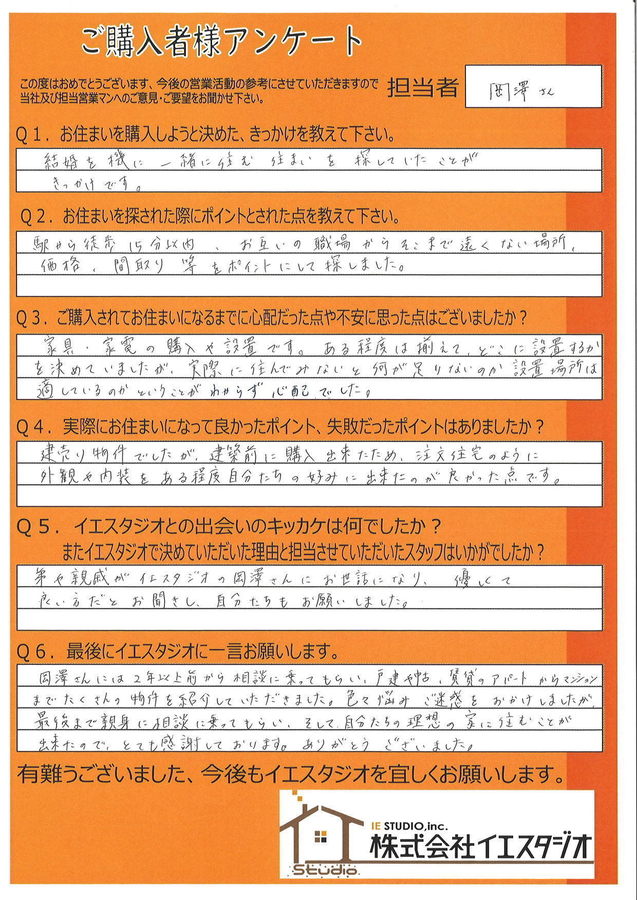 ご購入者様アンケート
この度はおめでとうございます、今後の営業活動の参考にさせていただきますので
当社及び担当営業マンへのご意見・ご要望をお聞かせ下さい。
担当者
岡澤さん
Q1．お住まいを購入しようと決めた、きっかけを教えて下さい。
結婚を機に一緒に住む住まいを探していたことが
きっかけです。
Q2．お住まいを探された際にポイントとされた点を教えて下さい。
駅から徒歩15分以内、お互いの職場からそこまで遠くない場所、
価格、間取り等をポイントにして探しました。
Q3．ご購入されてお住まいになるまでに心配だった点や不安に思った点はございましたか？
家具・家電の購入や設置です。ある程度は揃えて、どこに設置するか
を決めていましたが、実際に住んでみないと何が足りないのか設置場所は
適しているのかということがわからず心配でした。
Q4．実際にお住まいになって良かったポイント、失敗だったポイントはありましたか？
建売り物件でしたが、建築前に購入出来たため、注文住宅のように
外観や内装をある程度自分たちの好みに出来たのが良かった点です。
Q5．イエスタジオとの出会いのキッカケは何でしたか？
またイエスタジオで決めていただいた理由と担当させていただいたスタッフはいかがでしたか？
弟や親戚がイエスタジオの岡澤さんにお世話になり、優しくて
良い方だとお聞きし、自分たちもお願いしました。
Q6．最後にイエスタジオに一言お願いします。
岡澤さんには2年以上前から相談に乗ってもらい、戸建や中古、賃貸のアパートからマンション
までたくさんの物件を紹介していただきました。色々悩みご迷惑をおかけしましたが、
最後まで親身に相談に乗ってもらい、そして自分たちの理想の家に住むことが
出来たので、とても感謝しております。ありがとうございました。
有難うございました、今後もイエスタジオを宜しくお願いします。
IE STUDIO,inc.
株式会社イエスタジオ
Studio